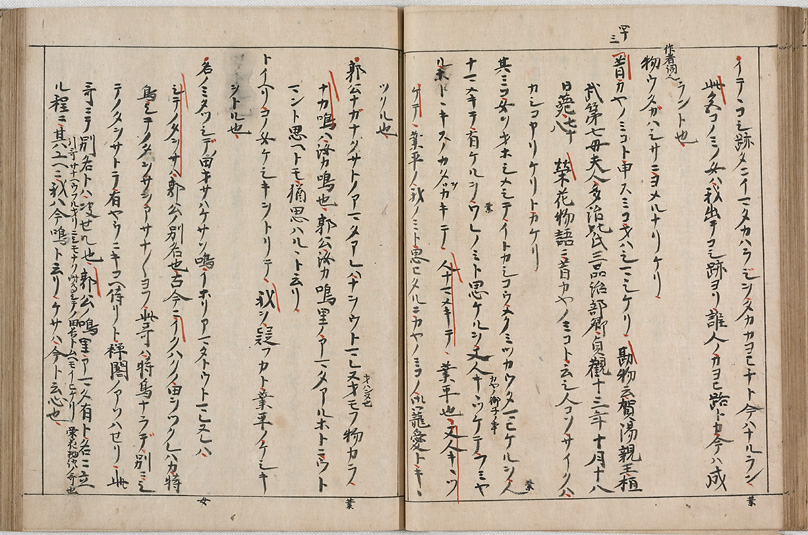 四十三
イテヽコシ跡タニイマタカハラシヲタカカヨヒチト今ハナルラン
此哥コノミシ女ハ我出テコシ跡ヨリ誰人ノカヨヒ路トカ今ハ成
ラント也
作者詞也
物ウタカハシサニヨメルナリケリ
昔カヤノミコト申スミコヲハシマシケリ 勘物云賀陽親王桓
武第七母夫人多治比氏三品治部卿貞観十三年十月十八
日薨七十八 栄花物語ニ昔カヤノミコト云シ人コソサイクハ
カシコカリケリトカケリ
其ミコ女ヲオホシメシテイトカシコウメクミツカウタマヒケルヲ人
ナマメキテ有ケルヲワレノミト思ケルヲ又人キヽツケテフミヤ
ルホトヽキスノカタヲカキテ 人ナマメキテ 業平也 又人キヽツ
ケテ 業平ノ我ノミト思ヒタルニカヤノミコノ御寵愛トキヽ
ツケル也
郭公ナカナクサトノアマタアレハナヲウトマレヌ思フ物カラ
ナカ鳴ハ汝カ鳴也 郭公汝カ鳴里ノアマタアルホトニウト
マント思ヘトモ猶思ハルヽト云リ
トイヘリコノ女ケシキヲトリテ 我ヲ疑フカト業平ノケシキ
ヲトル也
名ノミタツシテノ田オサハケサソ鳴イホリアマタトウトマレヌレハ
シテノタヲサハ郭公別名也古今ニイクハクノ田ヲツクレハカ時
鳥シテノタヲサヲアサナ〳〵ヨフ 此哥ハ時鳥ナラテ別ニシ
テノタヲサトテ有ヤウニキコヘ侍リト禅閤ノアソハセリ 此
哥ニテ別名トハ決セル也 郭公ノ鳴里アマタ有ト名ニ立
ル程ニ其ユヘニ我ハ今鳴ト云リ ケサハ今ト云心也